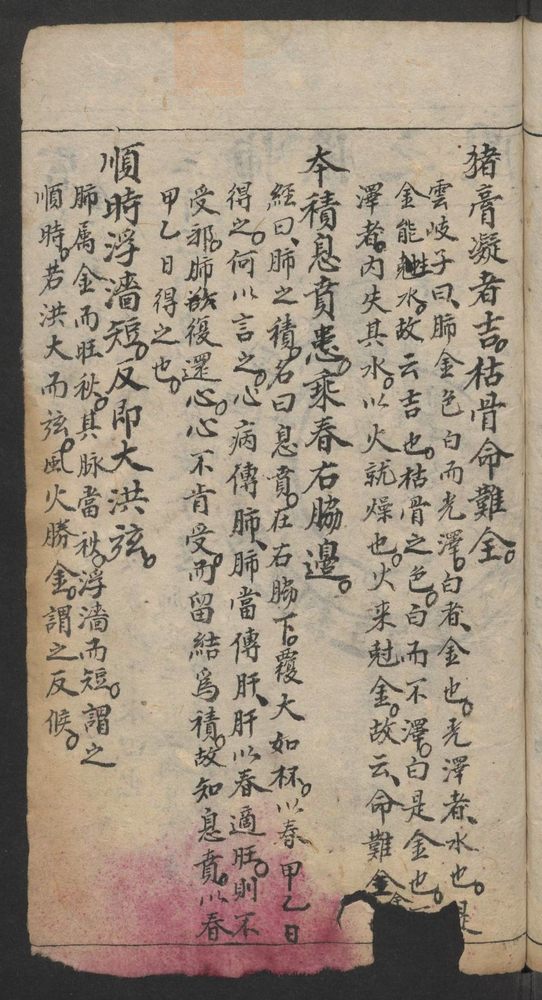 猪膏凝者吉。枯骨命難全。
雲岐子曰、肺金色白而光澤。白者、金也。光澤者、水也。是
金能生水。故云吉也。枯骨之色。白而不澤。白是金也。
澤者。內失其水。以火就燥也。火来尅金。故云、命難全
本積息賁患。乘春右脇邊。
經曰、肺之積。名曰息賁。在右脇下。覆大如杯。以春甲乙日
得之。何以言之。心病傳肺、肺當傳肝、肝以春適旺。則不
受邪。肺欲復還心。心不肯受。而留結爲積。故知息賁。以春
甲乙日得之也。
順時浮濇短。反即大洪弦。
肺属金而旺秋。其脉當秋。浮濇而短。謂之
順時。若洪大而弦。風火勝金。謂之反候。